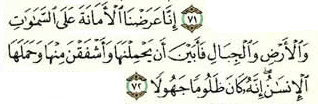 ٧١ إِنَّا عَرَضْنَا ٱلْأَمَانَةَ عَلَى ٱلسَّمَٰوَٰتِ
وَٱلْأَرْضِ وَٱلْجِبَالِ فَأَبَيْنَ أَن يَحْمِلْنَهَا وَأَشْفَقْنَ مِنْهَا وَحَمَلَهَا
ٱلْإِنسَٰنُ إِنَّهُۥ كَانَ ظَلُومًا جَهُولًا ٧٢